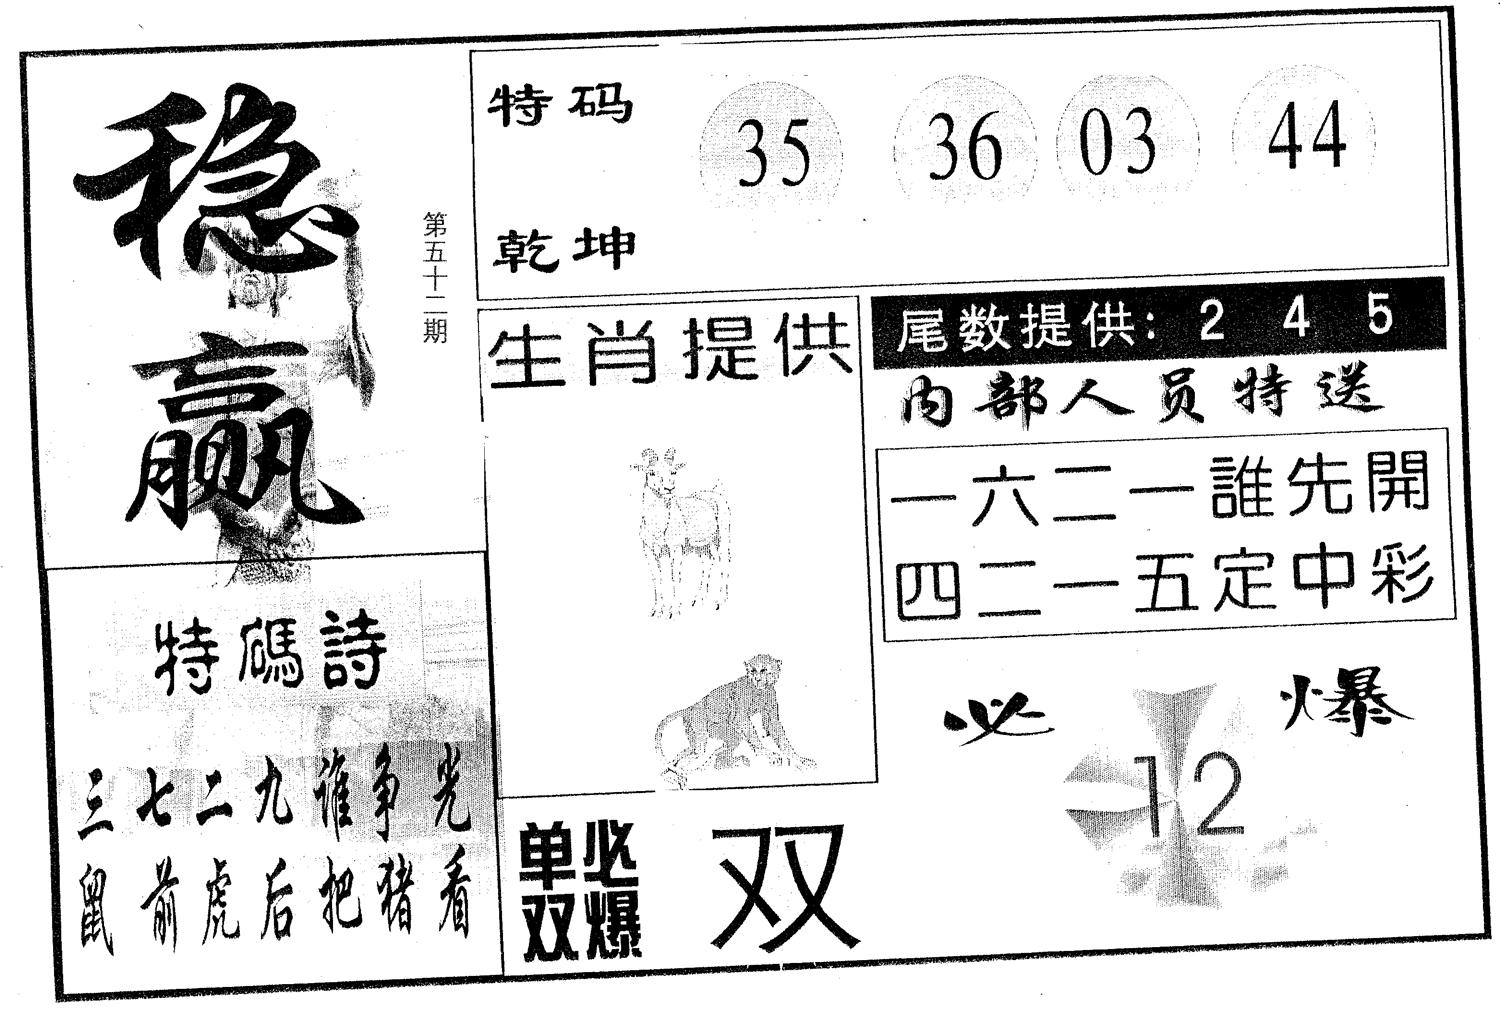 稳
赢
第五十二期
特码
乾坤
35 36 03 44
生肖提供
尾数提供: 2 4 5
内部人员特送
一六二一誰先開
四二一五定中彩
特碼詩
三七二九谁争光
鼠前虎后把猪看
单双
必爆
双
必爆
12